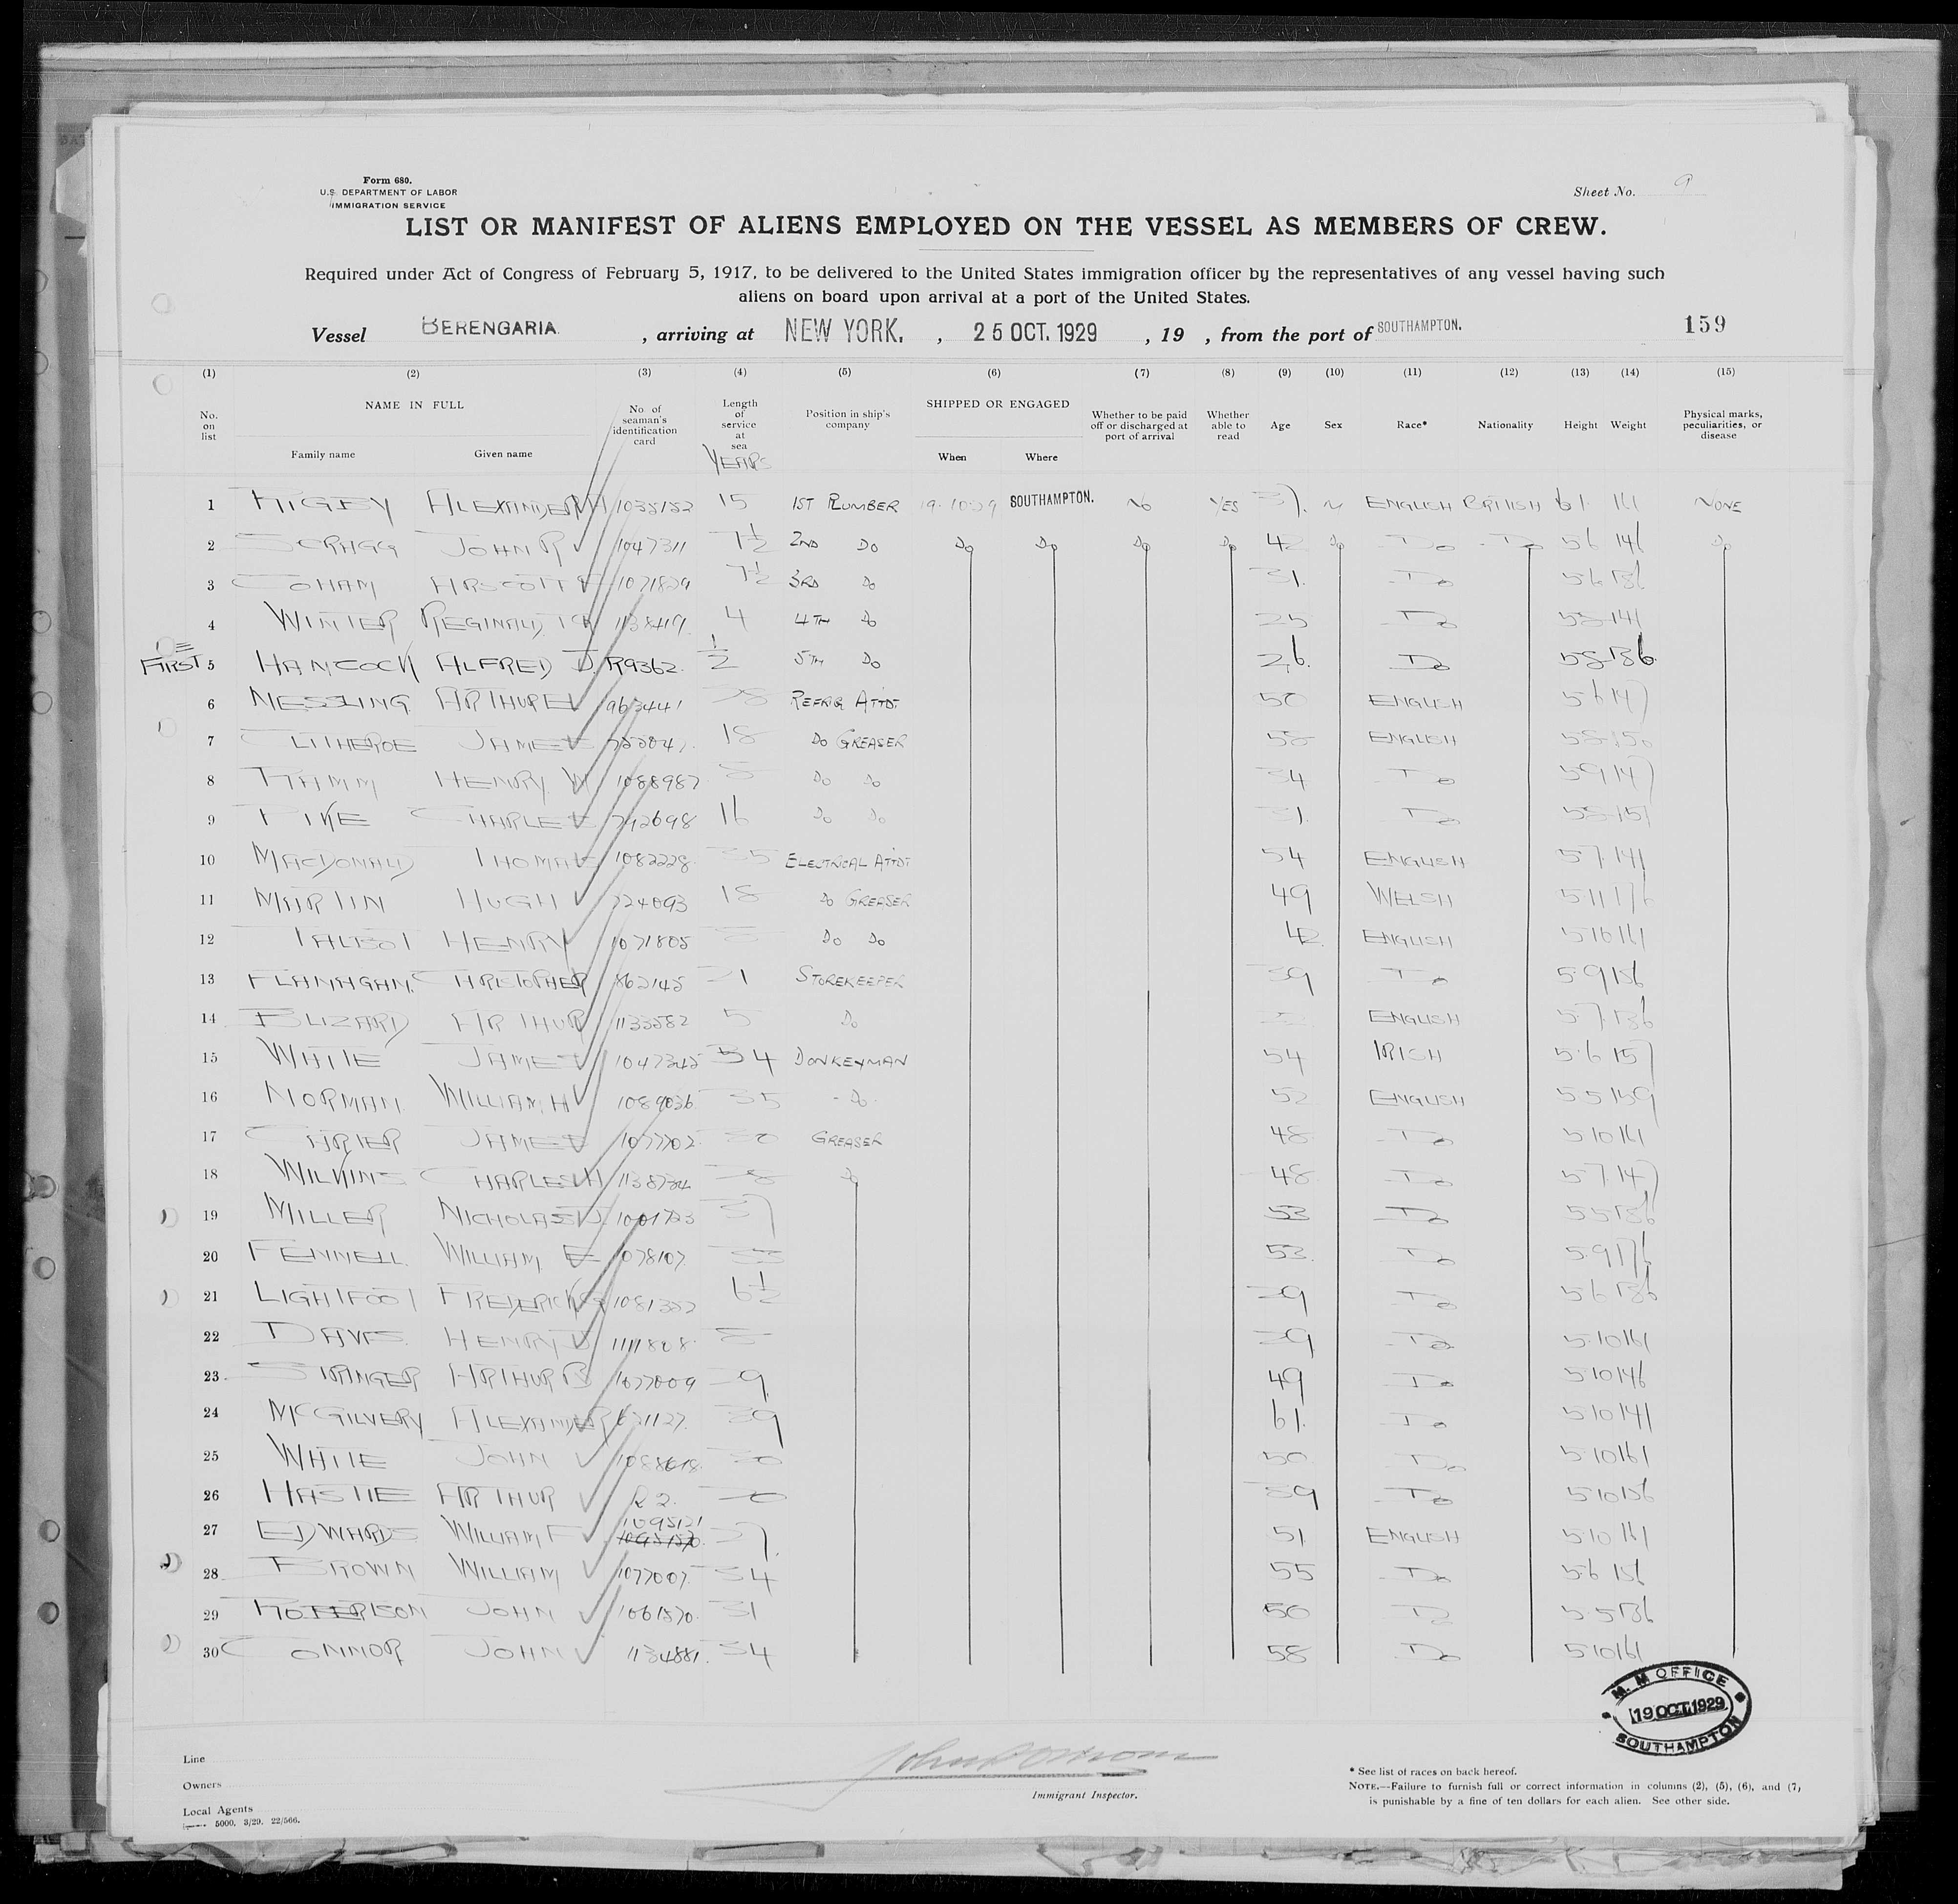 Form 680.
U.S. DEPARTMENT OF LABOR
IMMIGRATION SERVICE
Sheet No. 9
LIST OR MANIFEST OF ALIENS EMPLOYED ON THE VESSEL AS MEMBERS OF CREW.
Required under Act of Congress of February 5, 1917, to be delivered to the United States immigration officer by the representatives of any vessel having such
aliens on board upon arrival at a port of the United States.
Vessel BERENGARIA , arriving at NEW YORK. , 25 OCT. 1929 , 19 , from the port of SOUTHAMPTON. 159
(1) (2) (3) (4) (5) (6) (7) (8) (9) (10) (11) (12) (13) (14) (15)
No. on list NAME IN FULL Family name Given name No of seaman's identification card Length of service at sea YEARS Position in ship's company SHIPPED OR ENGAGED When Where Whether to be paid off or discharged at port of arrival Whether able to read Age Sex Race* Nationality Height Weight Physical marks, peculiarities, or disease
1 ALEXANDER 15 1ST PLUMBER 19.10.29 SOUTHAMPTON. No YES ENGLISH BRITISH NONE
2 SCRAGG JOHN R 1047311 7½ 2ND Do Do Do Do Do 42 Do Do Do 5 6 146 Do
3 7½ 3RD Do 31. Do 5 6 136
4 WINTER REGINALD 4 4TH Do 25 Do 5 8 141
FIRST 5 HANCOCK ALFRED J. R9362. ½ 5TH Do 26. Do 5 8 136
6 NESSLING ARTHUR E 963441 REFRIG ATTDT 50 ENGLISH 5 6 147
7 CLITHEROE JAMES 18 Do GREASER 58 ENGLISH 5 8 150
8 HENRY W 1088987 Do Do 34 Do 5 9 147
9 PIKE CHARLES 742698 16 Do Do 31. Do 5 8 151
10 MACDONALD THOMAS 1082228 35 ELECTRICAL ATTDT 54 ENGLISH 5 7 141
11 MARTIN HUGH 724093 18 Do GREASER 49 WELSH 5 11 176
12 TALBOT HENRY 1071805 Do Do 42. ENGLISH 5 10 161
13 FLANAGAN. CHRISTOPHER 862145 STOREKEEPER 39 Do 5 9 156
14 BLIZARD ARTHUR 1133582 5 Do ENGLISH 5 7 136
15 WHITE JAMES 34 DONKEYMAN 54 IRISH 5 6 157
16 NORMAN. WILLIAM H 1089036 35 Do 52 ENGLISH 5 5 159
17 CARTER JAMES 1077702 30 GREASER 48 Do 5 10 161
18 WILKINS CHARLES H Do 48 Do 5 7 147
19 MILLER NICHOLAS J. 37 53 Do 5 5 136
20 FENNELL WILLIAM E 1078107. 53 Do 5 9 176
21 LIGHTFOOT FREDERICK 6½ 39 Do 5 6 136
22 HENRY 1111808 39 Do 5 10 161
23 STRINGER ARTHUR B 1077009 9. 49 Do 5 10 146
24 MCGILVERY ALEXANDER 39 61. Do 5 10 141
25 WHITE JOHN 30 50 Do 5 10 161
26 HASTIE ARTHUR R 2. 39 Do 5 10 156
27 EDWARDS WILLIAM F 1095121 37 51 ENGLISH 5 10 161
28 BROWN WILLIAM 1077007. 34 55 Do 5 6 156
29 JOHN 1061570. 31 50 Do 5 5 136
30 CONNOR JOHN 1134881. 34 58 Do 5 10 161
M. M OFFICE
19 OCT. 1929
SOUTHAMPTON
Line
Owners
Local Agents
5000. 3/29. 22/566.
Immigrant Inspector.
* See list of races on back hereof.
NOTE.—Failure to furnish full or correct information in columns (2), (5), (6), and (7)
is punishable by a fine of ten dollars for each alien. See other side.